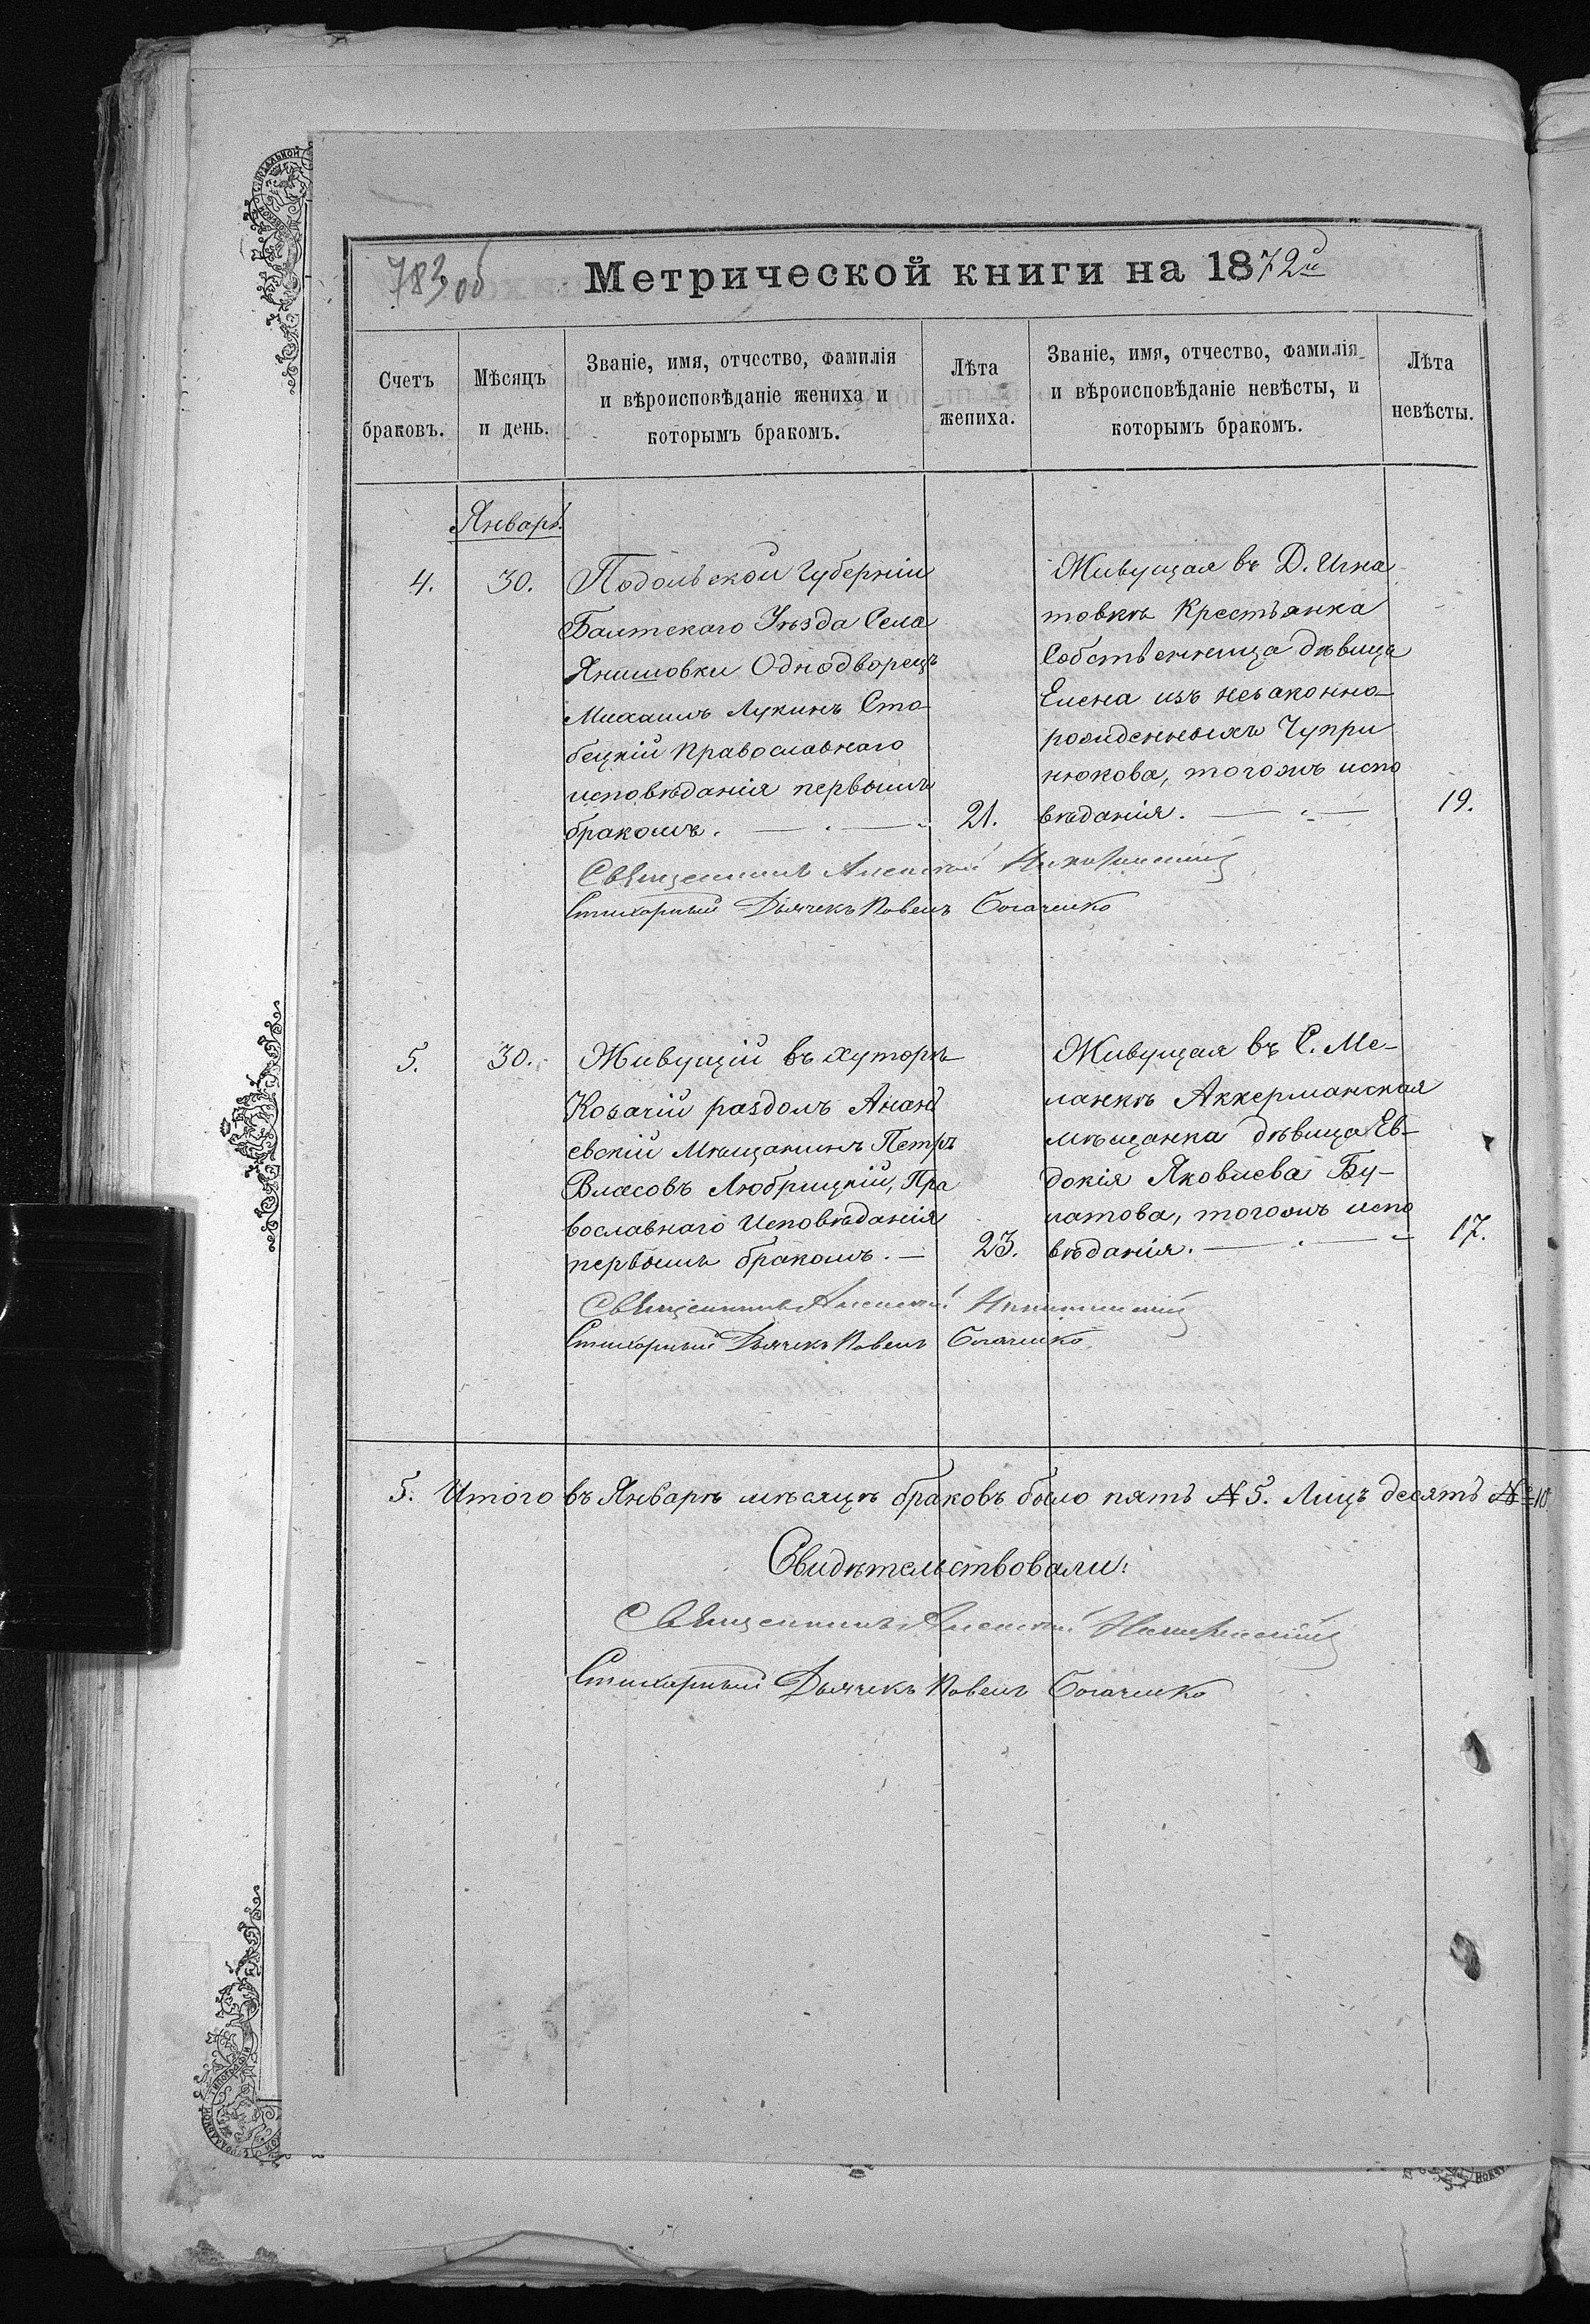 783об
Метрической книги на 1872й
Счетъ браковъ.
Мѣсяцъ и день.
Званіе, имя, отчество, фамилія
и вѣроисповѣданіе жениха и
которымъ бракомъ.
Лѣта жениха.
Званіе, имя, отчество, фамилія
и вѣроисповѣданіе невѣсты, и
которымъ бракомъ.
Лѣта невѣсты.
Январь.
4.
30.
Подольской Губерніи
Балтскаго Уѣзда Села
Янишовки Однодворецъ
Михаилъ Лукинъ Сто-
бецкій Православнаго
исповѣданія первымъ
бракомъ.
21.
Живущая въ Д. Игна
товкѣ Крестьянка
Собственница дѣвица
Елена изъ незаконно-
рожденныхъ Чупри
нюкова, тогожъ испо
вѣданія.
19.
Священникъ Алексѣй
Стихарный Дьячекъ Павелъ Богаченко
5.
30.
Живущій въ хуторѣ
Козачій раздолъ Анань
евскій Мѣщанинъ Петръ
Власовъ Любрицкій, Пра
вославнаго Исповѣданія
первымъ бракомъ.
23.
Живущая въ С. Ме-
ланкѣ Аккерманская
мѣщанка дѣвица Ев-
докія Яковлева Бу-
латова, тогожъ испо
вѣданія.
17.
Священникъ Алексѣй
Стихарный Дьячекъ Павелъ Богаченко
5. Итого въ Январѣ мѣсяцѣ браковъ было пять № 5. Лицъ десять № 10.
Свидѣтельствовали:
Священникъ Алексѣй
Стихарный Дьячекъ Павелъ Богаченко